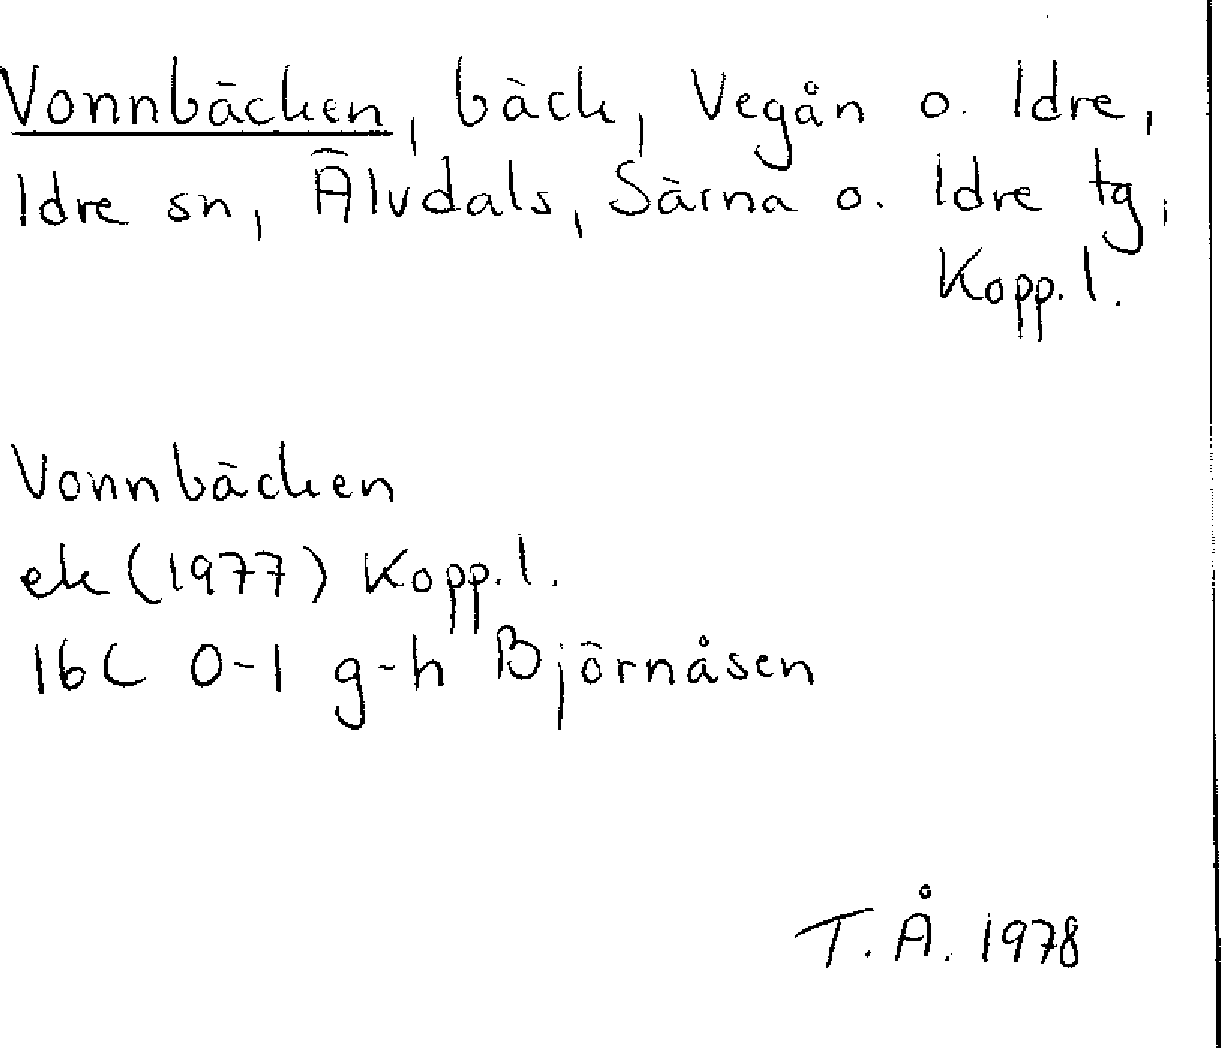 Vonnbäcken, bäck, Vegån o. Idre,
Idre sn, Älvdals, Särna o. Idre tg,
Kopp. l.
Vonnbäcken
ek (1977) Kopp. l.
16C 0-1 g-h Björnåsen
T. Å. 1978